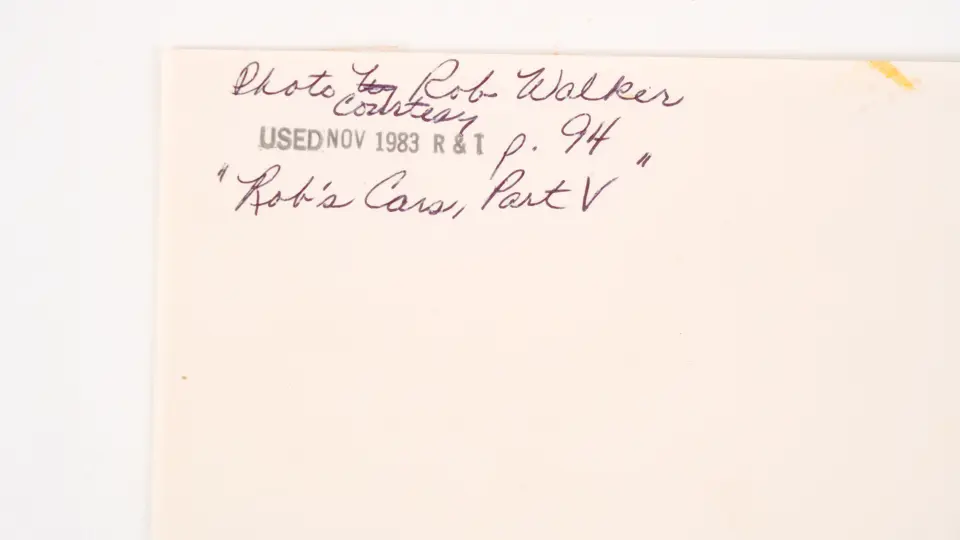 Photo by Rob Walker
courtesy
USED NOV 1983 R & T p. 94
"Rob's Cars, Part V"